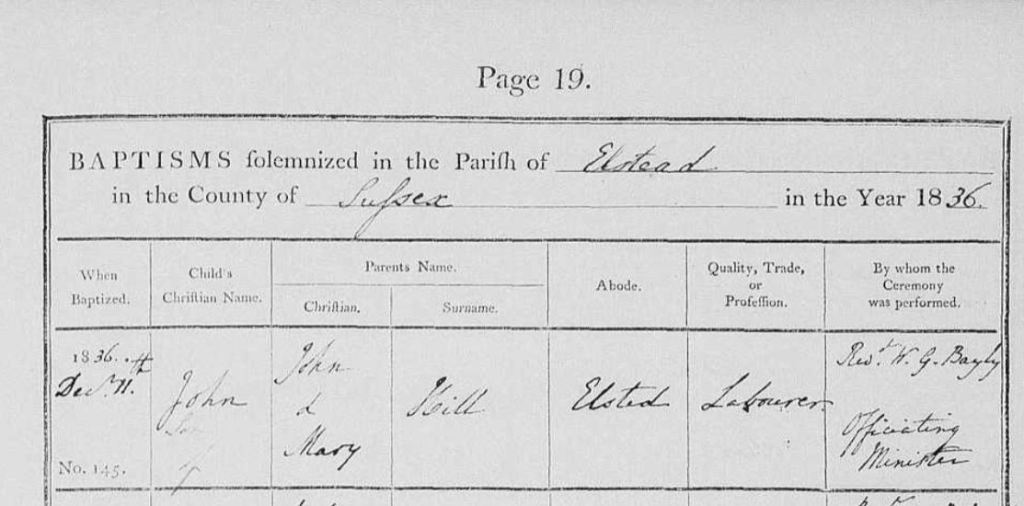 Page 19.
BAPTISMS ſolemnized in the Pariſh of Elstead
in the County of Suſsex in the Year 1836.
When
Baptized.
Child's
Chriſtian Name.
Parents Name.
Chriſtian.
Surname.
Abode.
Quality, Trade,
or
Profeſſion.
By whom the
Ceremony
was performed.
1836.
Decr. 11th
No. 145.
John
Son
of
John
&
Mary
Hill
Elsted
Labourer
Revd. W. G. Bayly
Officiating
Minister